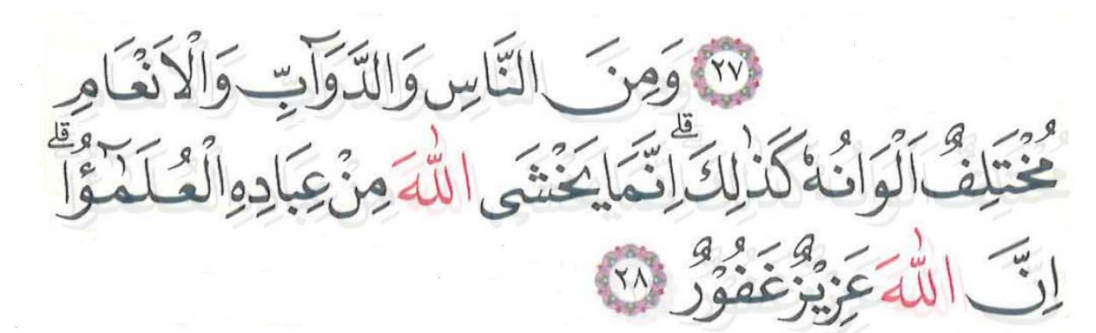 ٢٧ وَمِنَ النَّاسِ وَالدَّوَآبِّ وَالْاَنْعَامِ
مُخْتَلِفٌ اَلْوَانُهٗ كَذٰلِكَ ۗ اِنَّمَا يَخْشَى اللّٰهَ مِنْ عِبَادِهِ الْعُلَمٰۤؤُا ۗ
اِنَّ اللّٰهَ عَزِيْزٌ غَفُوْرٌ ٢٨